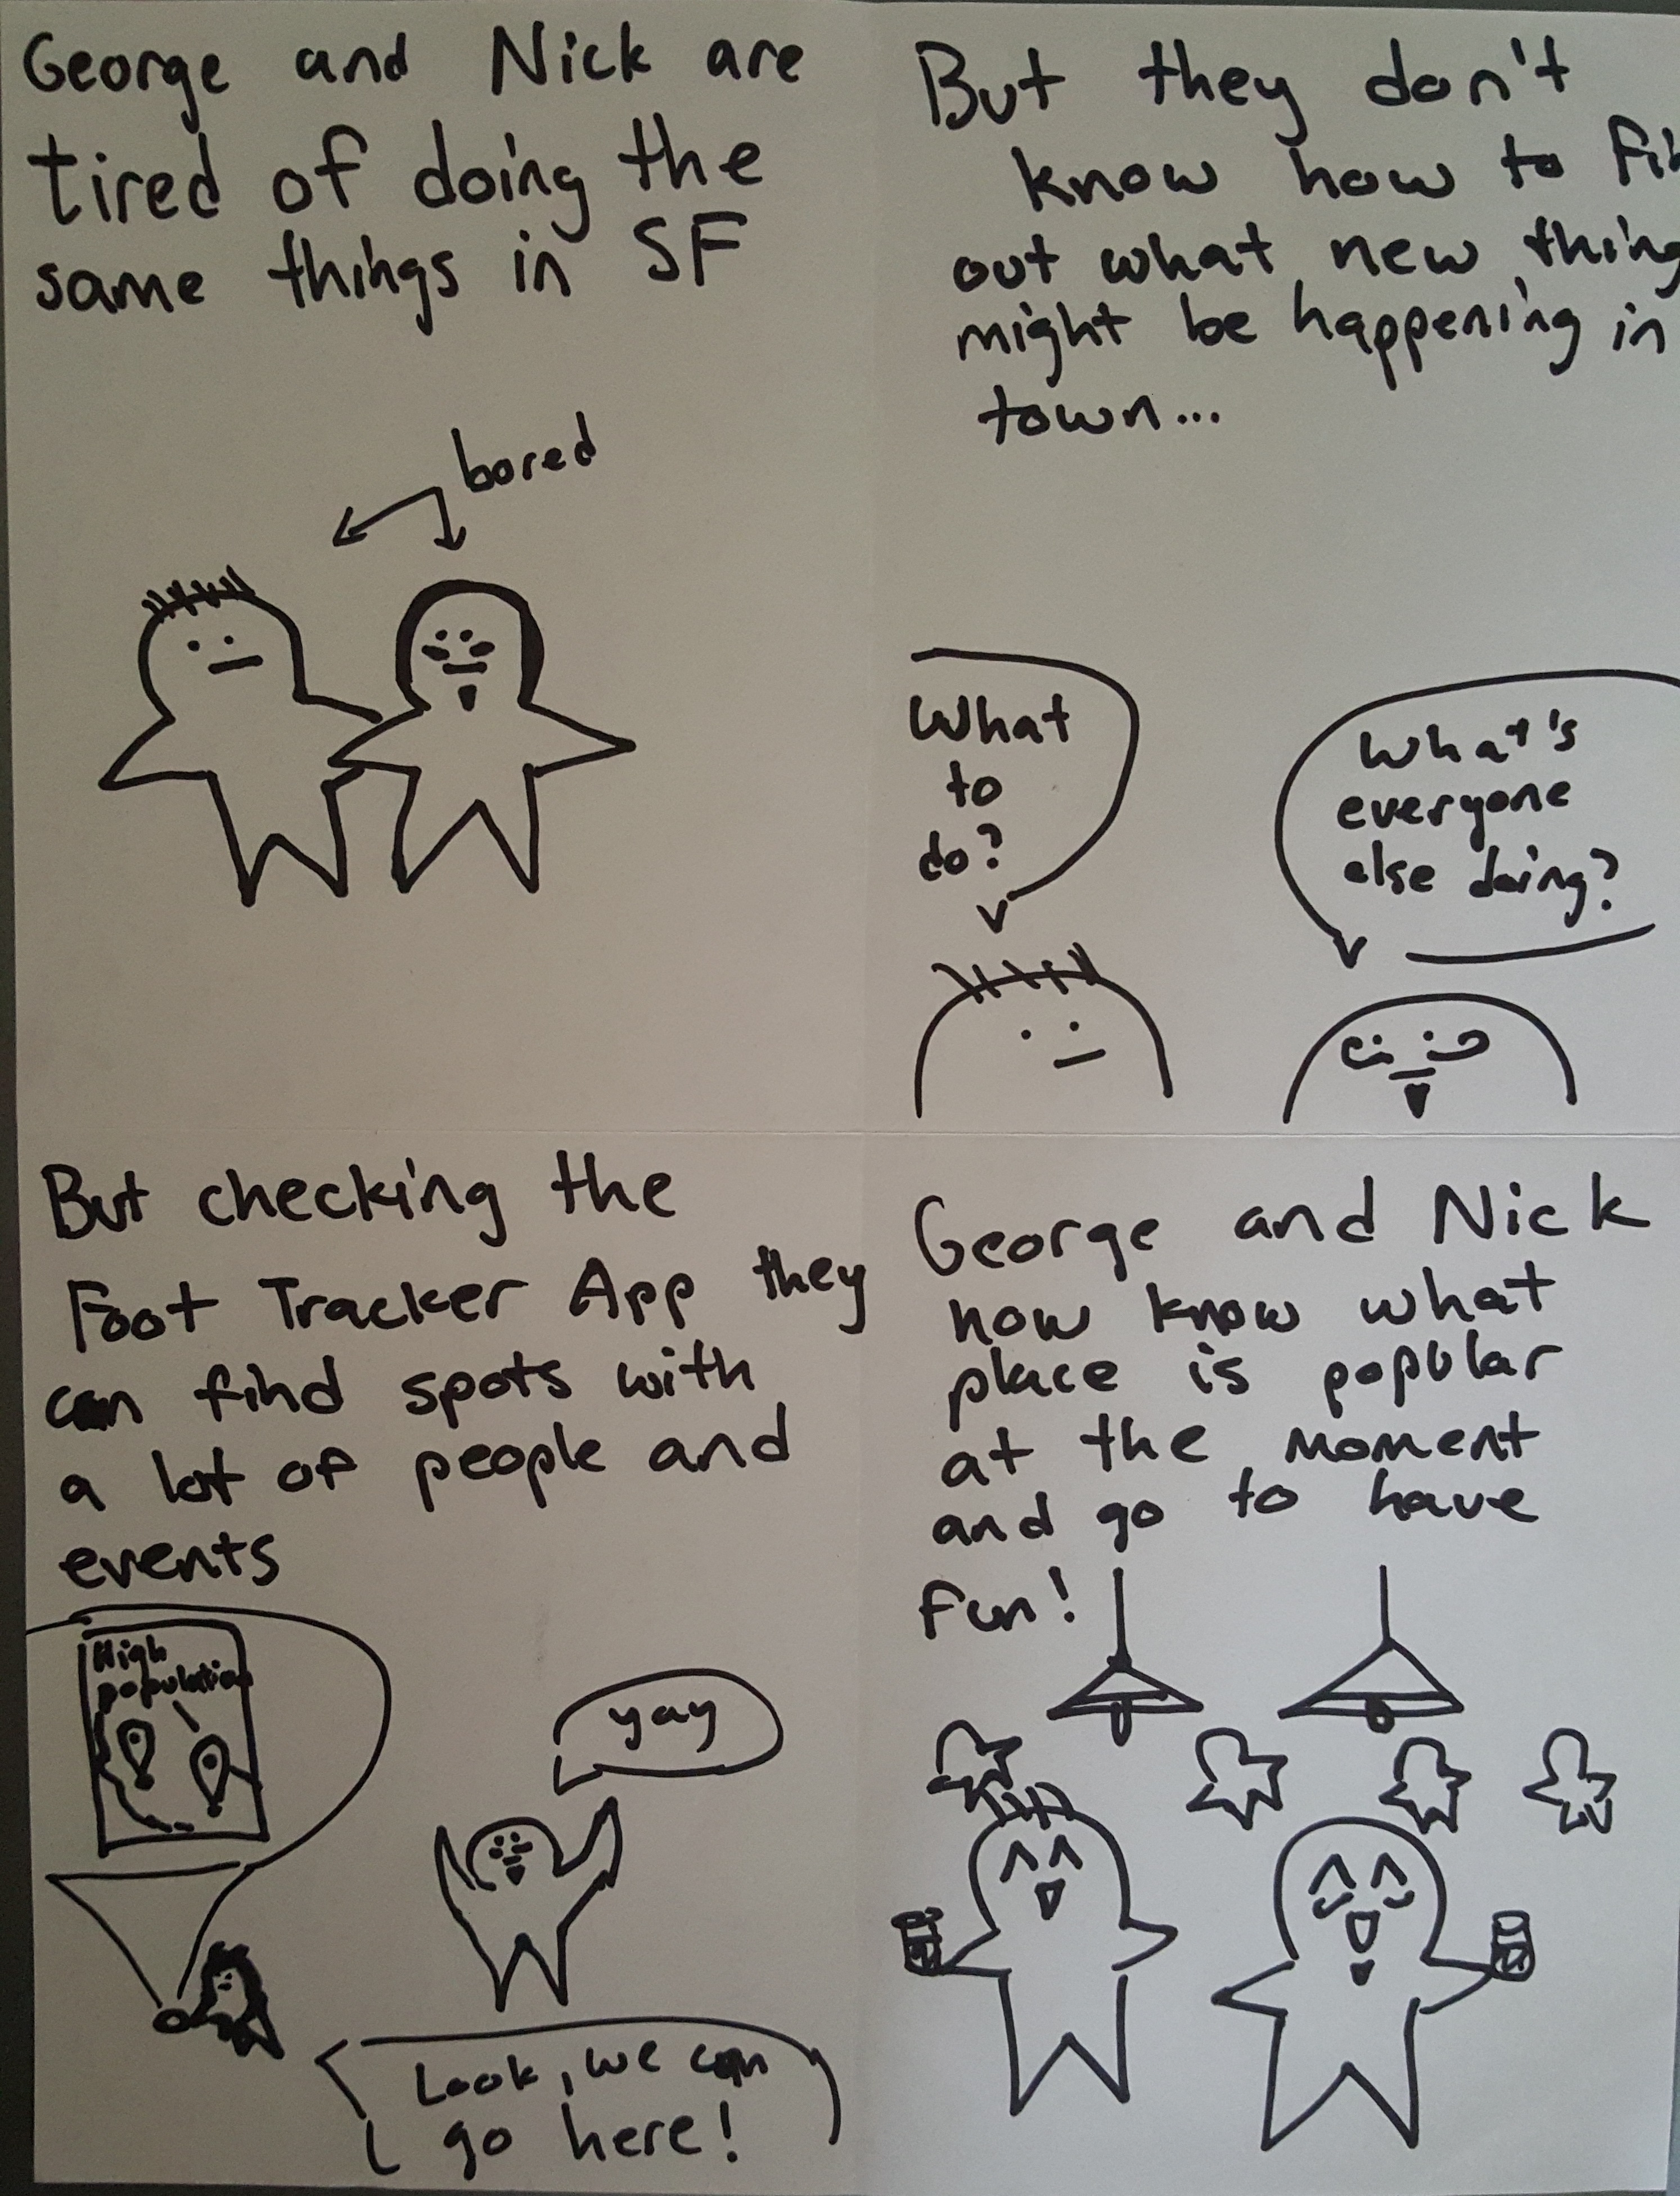 George and Nick are
tired of doing the
same things in SF
bored
But they don't
know how to
out what new
might be happening in
town...
What
to
do?
What's
everyone
else doing?
But checking the
Foot Tracker App they
can find spots with
a lot of people and
events
High
population
yay
Look, we can
go here!
George and Nick
now know what
place is popular
at the moment
and go to have
fun!